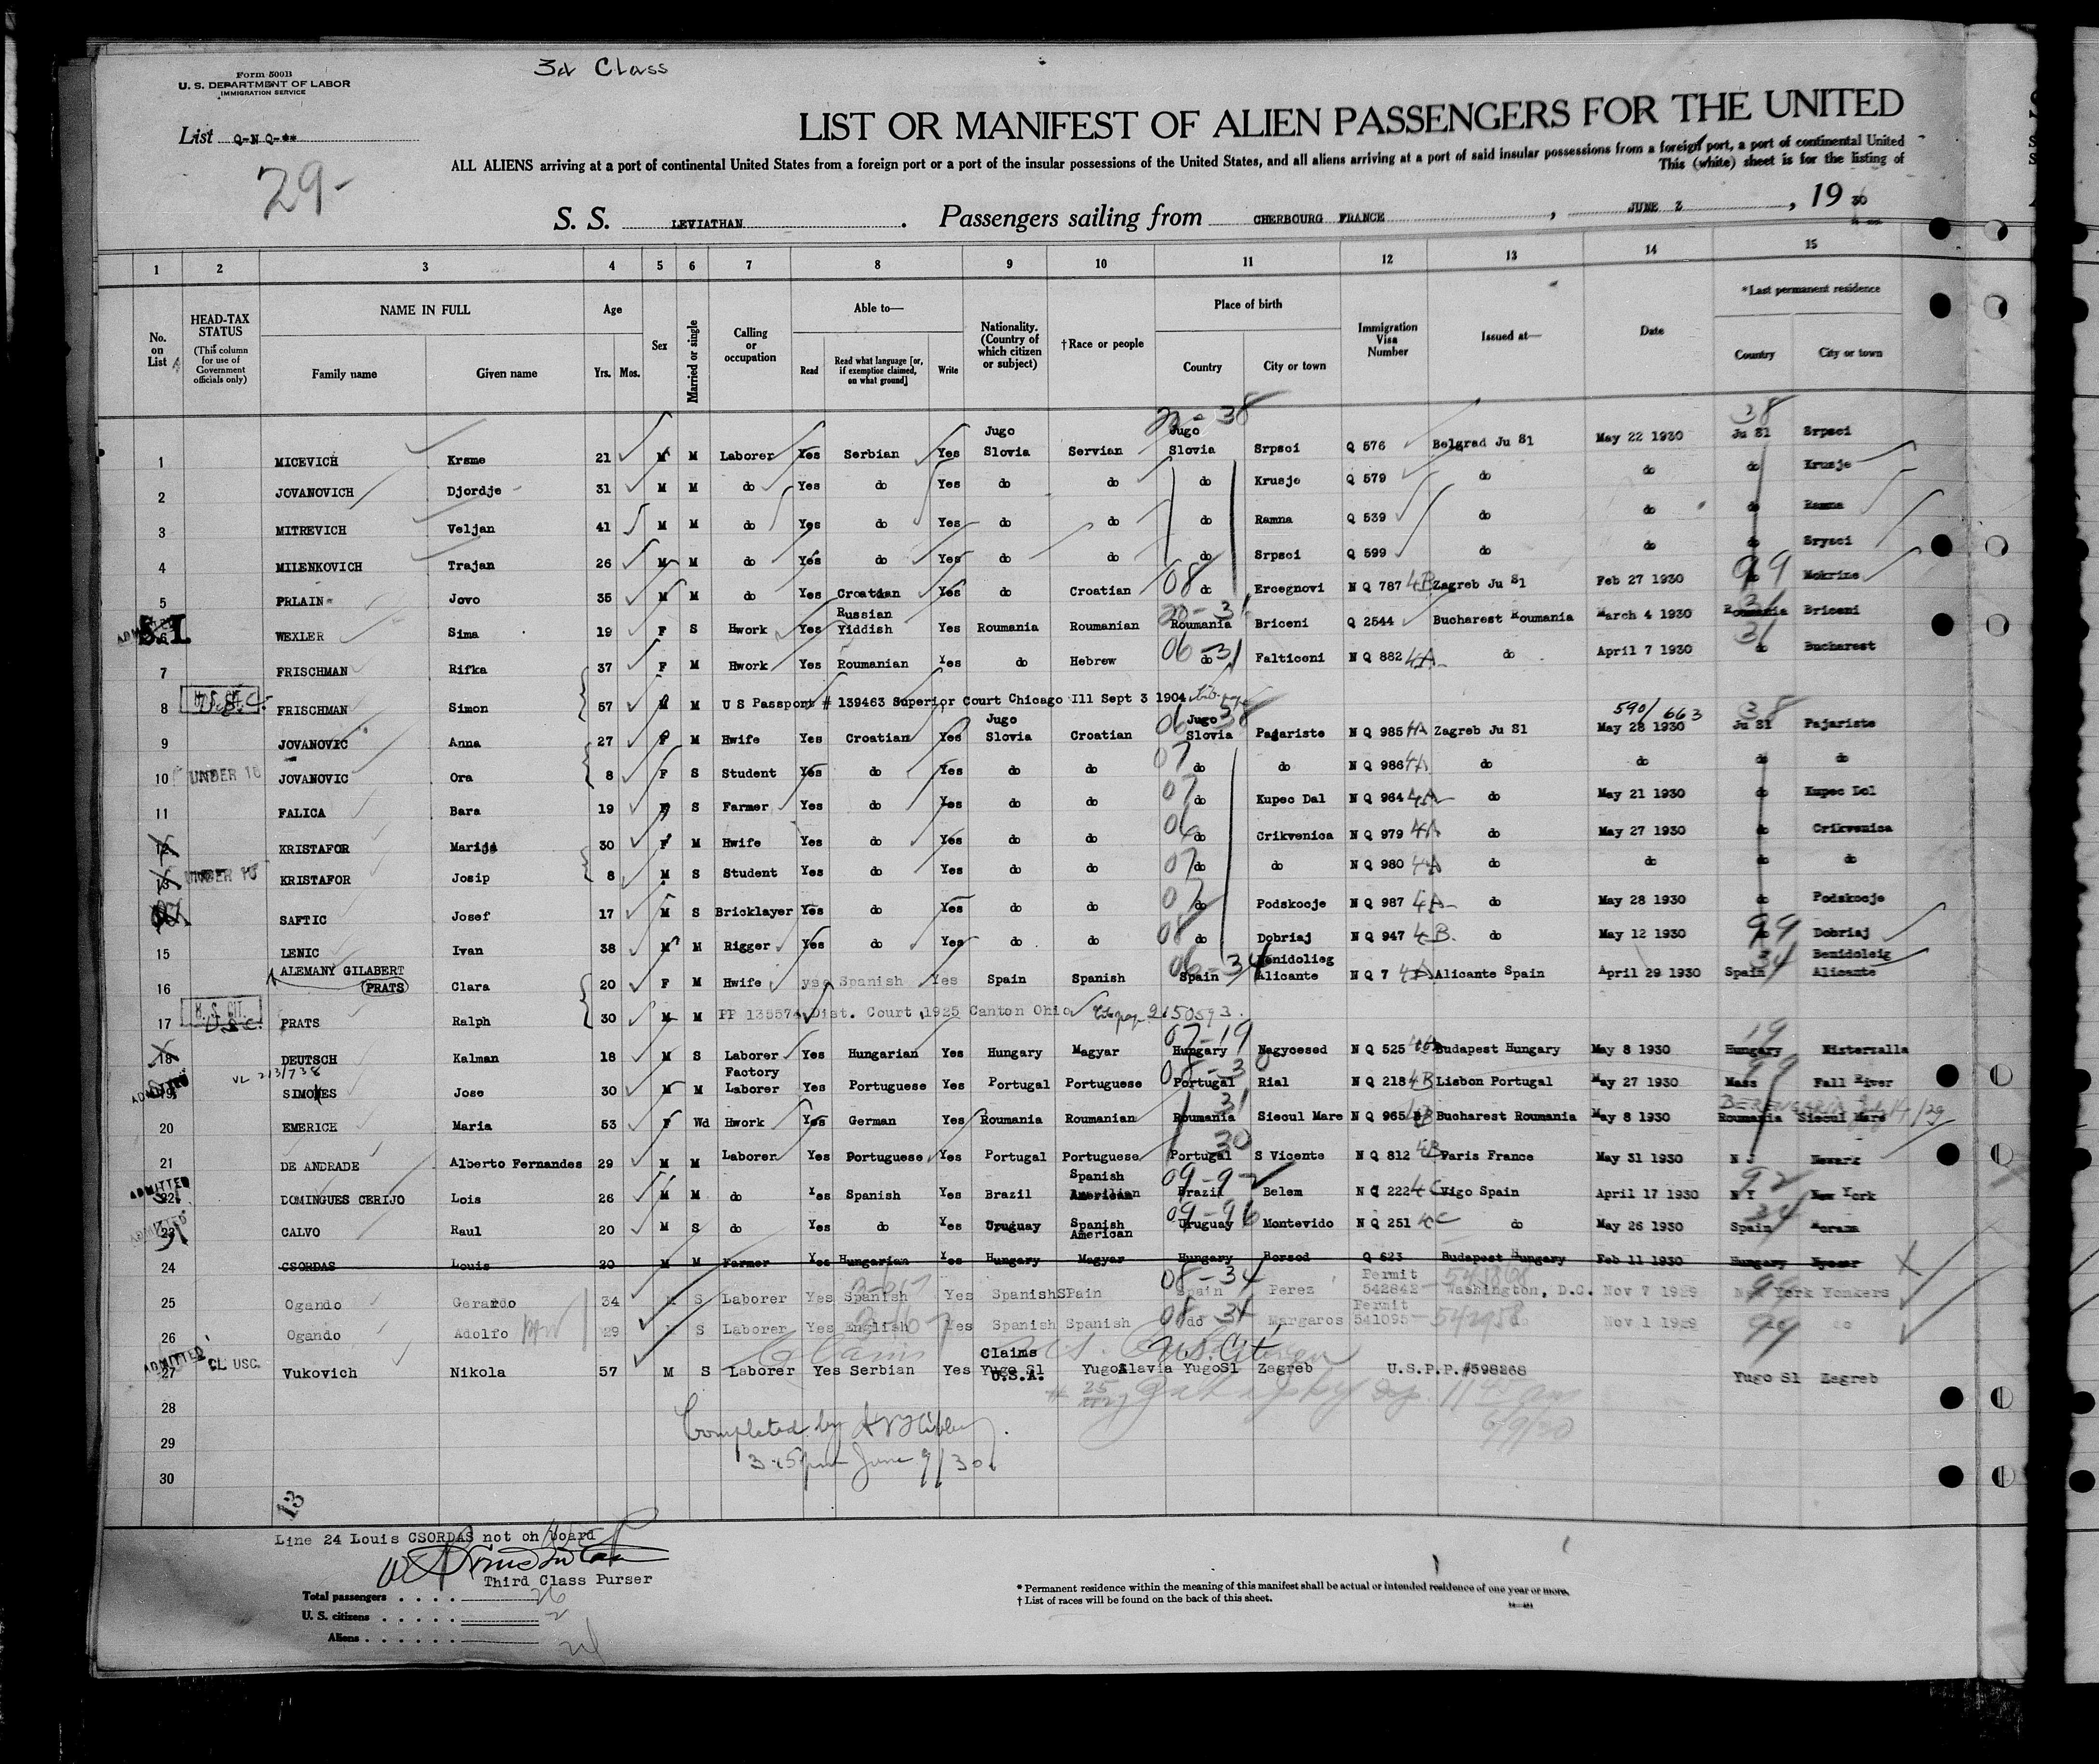 3d Class
Form 500B
U. S. DEPARTMENT OF LABOR
IMMIGRATION SERVICE
List Q-N Q-**
29-
LIST OR MANIFEST OF ALIEN PASSENGERS FOR THE UNITED
ALL ALIENS arriving at a port of continental United States from a foreign port or a port of the insular possessions of the United States, and all aliens arriving at a port of said insular possessions from a foreign port, a port of continental United
This (white) sheet is for the listing of
S. S. LEVIATHAN. Passengers sailing from CHERBOURG FRANCE, JUNE 3, 19 30
1 2 3 4 5 6 7 8 9 10 11 12 13 14 15
No. on List
HEAD-TAX STATUS (This column for use of Government officials only)
NAME IN FULL
Family name Given name
Age
Yrs. Mos.
Sex
Married or single
Calling or occupation
Able to—
Read Read what language [or, if exemption claimed, on what ground] Write
Nationality. (Country of which citizen or subject)
†Race or people
Place of birth
Country City or town
Immigration Visa Number
Issued at—
Date
*Last permanent residence
Country City or town
1 MICEVICH Krsme 21 M M Laborer Yes Serbian Yes Jugo Slovia Servian Jugo Slovia Srpsci Q 576 Belgrad Ju Sl May 22 1930 Ju Sl Srpsci
2 JOVANOVICH Djordje 31 M M do Yes do Yes do do do Krusje Q 579 do do do Krusje
3 MITREVICH Veljan 41 M M do Yes do Yes do do do Ramna Q 539 do do do Ramna
4 MILENKOVICH Trajan 26 M M do Yes do Yes do do do Srpsci Q 599 do do do Srysci
5 PRLAIN Jovo 35 M M do Yes Croatian Yes do Croatian 08 do Ercegnovi N Q 787 4B Zagreb Ju Sl Feb 27 1930 99 do Mokrine
6 WEXLER Sima 19 F S Hwork Yes Russian Yiddish Yes Roumania Roumanian Roumania Briceni Q 2544 Bucharest Roumania March 4 1930 Roumania Briceni
7 FRISCHMAN Rifka 37 F M Hwork Yes Roumanian Yes do Hebrew 06-31 do Falticeni N Q 882 4A do April 7 1930 31 do Bucharest
8 FRISCHMAN Simon 57 M M U S Passport # 139463 Superior Court Chicago Ill Sept 3 1904
590/663
9 JOVANOVIC Anna 27 F M Hwife Yes Croatian Yes Jugo Slovia Croatian Jugo Slovia Pajariste N Q 985 4A Zagreb Ju Sl May 28 1930 Ju Sl Pajariste
10 UNDER 16 JOVANOVIC Ora 8 F S Student Yes do Yes do do 07 do do N Q 986 4A do do do do
11 FALICA Bara 19 F S Farmer Yes do Yes do do 07 do Kupec Dal N Q 964 4A do May 21 1930 do Kupec Dol
12 KRISTAFOR Marija 30 F M Hwife Yes do Yes do do 06 do Crikvenica N Q 979 4A do May 27 1930 do Crikvenica
13 UNDER 16 KRISTAFOR Josip 8 M S Student Yes do Yes do do 07 do do N Q 980 4A do do do do
SAFTIC Josef 17 M S Bricklayer Yes do Yes do do 07 do Podskocje N Q 987 4A do May 28 1930 do Podskocje
15 LENIC Ivan 38 M M Rigger Yes do Yes do do 08 do Dobriaj N Q 947 4B do May 12 1930 99 do Dobriaj
16 ALEMANY GILABERT PRATS Clara 20 F M Hwife yes Spanish Yes Spain Spanish 06-34 Spain Benidolieg Alicante N Q 7 Alicante Spain April 29 1930 Spain Benidoleig Alicante
17 PRATS Ralph 30 M M PP 135574 Dist. Court 1925 Canton Ohio
18 DEUTSCH Kalman 18 M S Laborer Yes Hungarian Yes Hungary Magyar 07-19 Hungary Nagycesed N Q 525 Budapest Hungary May 8 1930 19 Hungary Mistersalla
19 ADMITTED SIMONES Jose 30 M M Factory Laborer Yes Portuguese Yes Portugal Portuguese 08-30 Portugal Rial N Q 218 4B Lisbon Portugal May 27 1930 Mass Fall River
20 EMERICH Maria 53 F Wd Hwork Yes German Yes Roumania Roumanian 31 Roumania Siecul Mare N Q 965 Bucharest Roumania May 8 1930 Roumania Siecul Mare
21 DE ANDRADE Alberto Fernandes 29 M M Laborer Yes Portuguese Yes Portugal Portuguese 30 Portugal S Vicente N Q 812 4B Paris France May 31 1930 N J Newark
22 ADMITTED DOMINGUES CERIJO Lois 26 M M do Yes Spanish Yes Brazil Spanish American 09-92 Brazil Belem N Q 222 4C Vigo Spain April 17 1930 N Y New York
23 ADMITTED CALVO Raul 20 M S do Yes do Yes Uruguay Spanish American 09-96 Uruguay Montevido N Q 251 4C do May 26 1930 Spain Morana
24 CSORDAS Louis 20 M M Farmer Yes Hungarian Yes Hungary Magyar Hungary Borsod Q 623 Budapest Hungary Feb 11 1930 Hungary
25 Ogando Gerardo 34 M S Laborer Yes Spanish Yes Spanish SPain 08-34 Spain Perez Permit 542842 Washington, D.C. Nov 7 1929 New York Yonkers
26 Ogando Adolfo 29 M S Laborer Yes English Yes Spanish Spanish 08-34 do Margaros Permit 541095 do Nov 1 1929 do do
27 ADMITTED CL USC. Vukovich Nikola 57 M S Laborer Yes Serbian Yes Claims Yugo Sl U.S.A. YugoSlavia YugoSl Zagreb U.S.P.P.#598268 Yugo Sl Zagreb
28
29
30
Completed by
3.15 pm June 9/30
13
Line 24 Louis CSORDAS not on board
Third Class Purser
Total passengers . . . . 26
U. S. citizens . . . . . 2
Aliens . . . . . . 24
* Permanent residence within the meaning of this manifest shall be actual or intended residence of one year or more.
† List of races will be found on the back of this sheet.